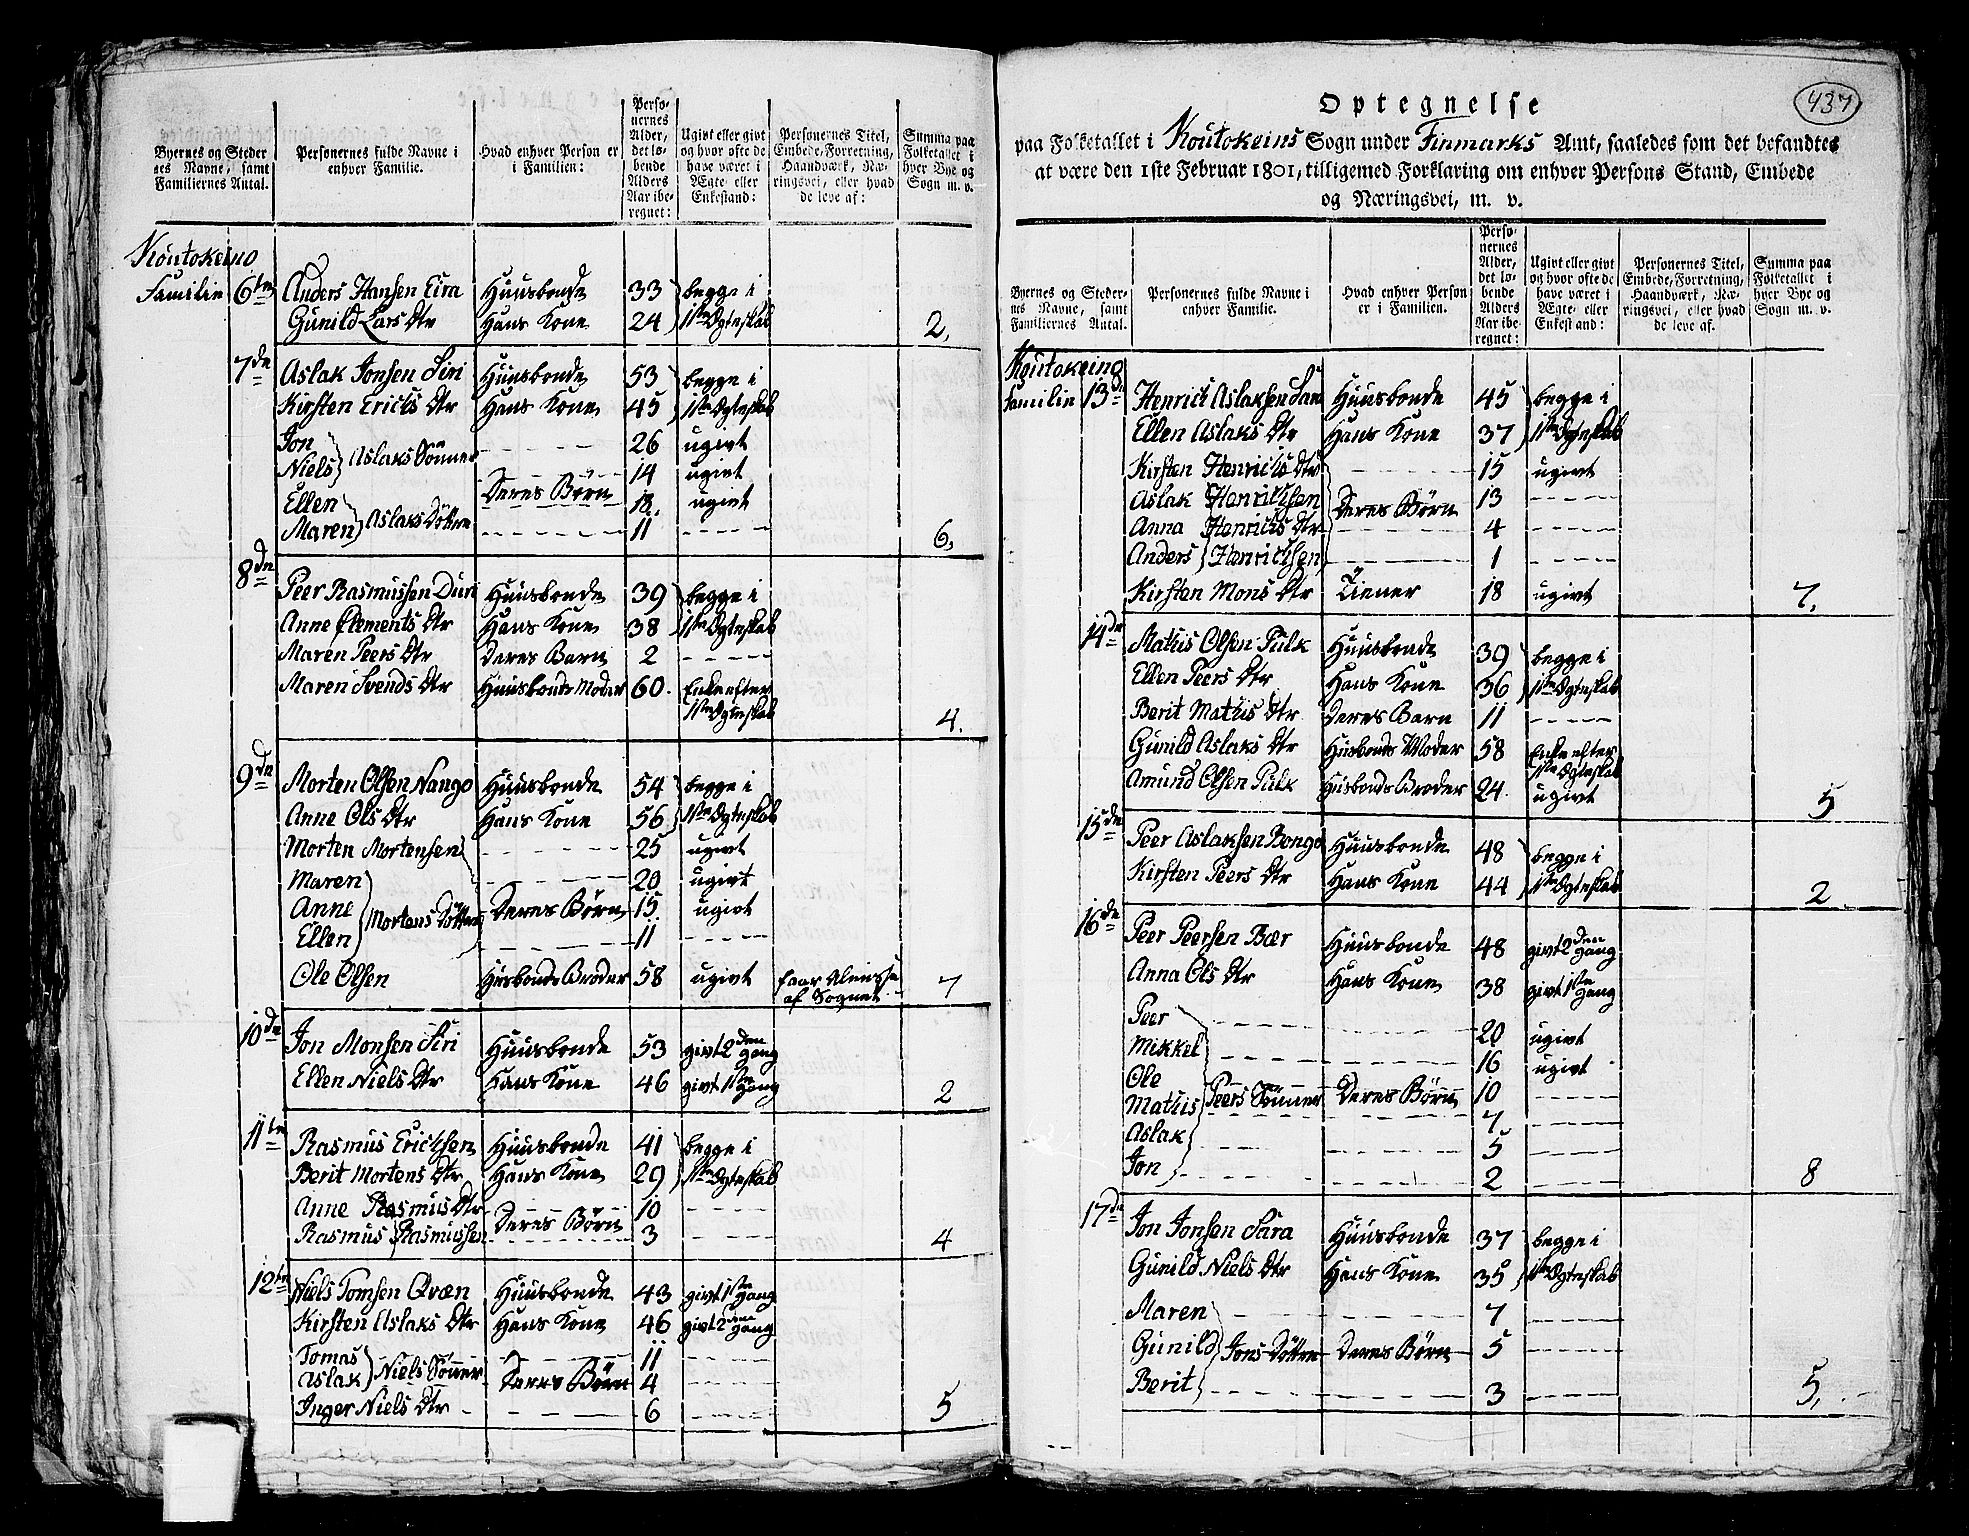 Byernes og Steder
nes Navne, samt
Familiernes Antal.
Personernes fulde Navne i
enhver Familie.
Hvad enhver Person er
i Familien:
Perso-
nernes
Alder,
det lø-
bende
Alders
Aar ibe-
regnet:
Ugivt eller givt
og hvor ofte de
have været i
Ægte- eller
Enkestand:
Personernes Titel,
Embede, Forretning,
Haandværk, Næ-
ringsvei, eller hvad
de leve af:
Summa paa
Folketallet i
hver Bye og
Sogn m. v.
Koutokeino
Familie 6te Anders Hansen Eira Huusbonde 33 begge i
Gunild Lars Dtr Hans Kone 24 1ste Ægteskab 2,
7de Aslak Jonsen Siri Huusbonde 53 begge i
Kirsten Erichs Dtr Hans Kone 45 1ste Ægteskab
Jon - - - 26 ugivt
Niels Aslaks Sønner 14 ugivt
Ellen Deres Börn 18. ugivt
Maren Aslaks Döttre - - - 11 - - - 6,
8de Peer Rasmussen Duri Huusbonde 39 begge i
Anne Clements Dtr Hans Kone 38 1ste Ægteskab
Maren Peers Dtr Deres Barn 2 - - -
Maren Svends Dtr Huusbonds Moder 60. Enke efter
1ste Ægteskab 4.
9de Morten Olsen Nango Huusbonde 54 begge i
Anne Ols Dtr Hans Kone 56 1ste Ægteskab
Morten Mortensen - - - 25 ugivt
Maren - - - 20 ugivt
Anne Mortens Döttre Deres Börn 15 ugivt
Ellen - - - 11 - - -
Ole Olsen Husbonds Broder 58 ugivt faar Almisse
af Sognet. 7
10de Jon Monsen Siri Huusbonde 53 givt 2den Gang
Ellen Niels Dtr Hans Kone 46 givt 1ste Gang 2
11te Rasmus Erichsen Huusbonde 41 begge i
Berit Mortens Dtr Hans Kone 29 1ste Ægteskab
Anne Rasmus Dtr Deres Börn 10 - - -
Rasmus Rasmussen 3 - - - 4
12te Niels Tomsen Qvæn Huusbonde 43 givt 1ste Gang
Kirsten Aslaks Dtr Hans Kone 46 givt 2den Gang
Tomas - - - 11 - - -
Aslak Niels Sönner Deres Börn 4 - - -
Inger Niels Dtr - - - 6 - - - 5
437
Optegnelse
paa Folketallet i Koutokeins Sogn under Finmarks Amt, saaledes som det befandtes
at være den 1ste Februar 1801, tilligemed Forklaring om enhver Persons Stand, Embede
og Næringsvei, m. v.
Byernes og Steder-
nes Navne, samt
Familiernes Antal.
Personernes fulde Navne i
enhver Familie.
Hvad enhver Person
er i Familien.
Perso-
nernes
Alder,
det lø-
bende
Alders
Aar ibe-
regnet:
Ugivt eller givt
og hvor ofte de
have været i
Ægte- eller
Enkestand:
Personernes Titel,
Embede, Forretning,
Haandværk, Næ-
ringsvei, eller hvad
de leve af.
Summa paa
Folketallet i
hver Bye og
Sogn m. v.
Koutokeino
Familie 13de Henrich Aslaksen Huusbonde 45 begge i
Ellen Aslaks Dtr Hans Kone 37 1ste Ægteskab
Kirsten Henrichs Dtr - - - 15 ugivt
Aslak Henrichsen Deres Börn 13 - - -
Anna Henrichs Dtr 4 - - -
Anders Henrichsen - - - 1 - - -
Kirsten Mons Dtr Tiener 18 ugivt 7,
14de Mathis Olsen Pulk Huusbonde 39 begge i
Ellen Peers Dtr Hans Kone 36 1ste Ægteskab
Berit Mathis Dtr Deres Barn 11 - - -
Gunild Aslaks Dtr Husbonds Moder 58 Enke efter
1ste Ægteskab
Amund Olsen Pulk Husbonds Broder 24 ugivt 5
15de Peer Aslaksen Bongo Huusbonde 48 begge i
Kirsten Peers Dtr Hans Kone 44 1ste Ægteskab 2
16de Peer Peersen Bær Huusbonde 48 givt 2den Gang
Anna Ols Dtr Hans Kone 38 givt 1ste Gang
Peer - - - 20 ugivt
Mikkel - - - 16 ugivt
Ole 10 - - -
Mathis Peers Sönner Deres Börn 7 - - -
Aslak - - - 5 - - -
Jon - - - 2 - - - 8
17de Jon Jonsen Sara Huusbonde 37 begge i
Gunild Niels Dtr Hans Kone 35 1ste Ægteskab
Maren - - - 7 - - -
Gunild Jons Döttre Deres Börn 5 - - -
Berit - - - 3 - - - 5,